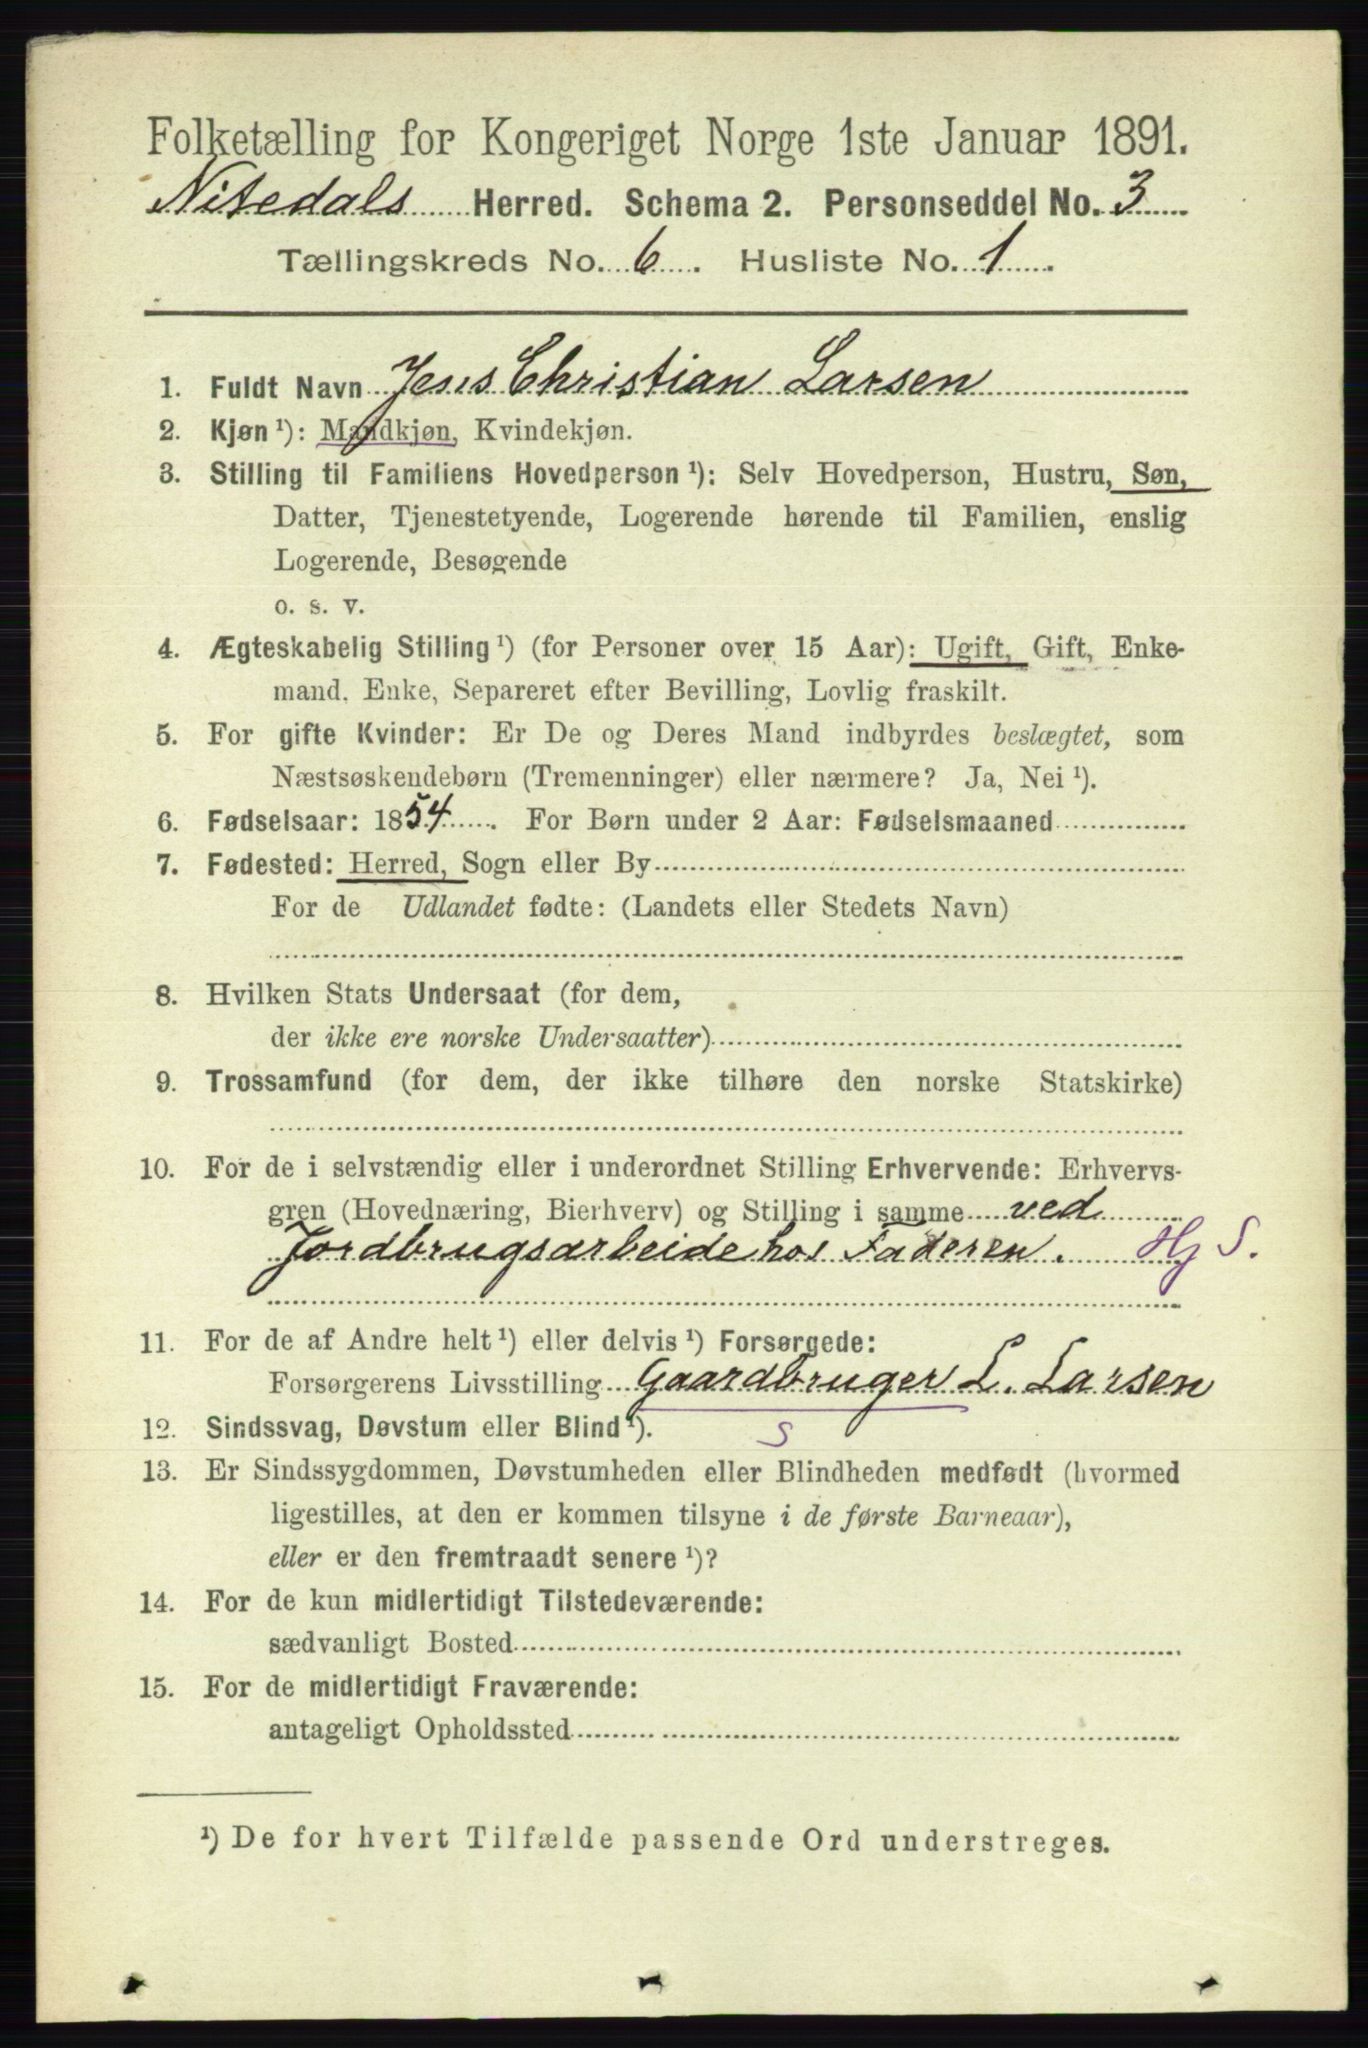 Folketælling for Kongeriget Norge 1ste Januar 1891.
Nitedals Herred. Schema 2. Personseddel No. 3
Tællingskreds No. 6. Husliste No. 1.
1. Fuldt Navn Jens Christian Larsen
2. Kjøn ¹): Mandkjøn, Kvindekjøn.
3. Stilling til Familiens Hovedperson ¹): Selv Hovedperson, Hustru, Søn,
Datter, Tjenestetyende, Logerende hørende til Familien, enslig
Logerende, Besøgende
o. s. v.
4. Ægteskabelig Stilling ¹) (for Personer over 15 Aar): Ugift, Gift, Enke-
mand, Enke, Separeret efter Bevilling, Lovlig fraskilt.
5. For gifte Kvinder: Er De og Deres Mand indbyrdes beslægtet, som
Næstsøskendebørn (Tremenninger) eller nærmere? Ja, Nei ¹).
6. Fødselsaar: 1854. For Børn under 2 Aar: Fødselsmaaned
7. Fødested: Herred, Sogn eller By
For de Udlandet fødte: (Landets eller Stedets Navn)
8. Hvilken Stats Undersaat (for dem,
der ikke ere norske Undersaatter)
9. Trossamfund (for dem, der ikke tilhøre den norske Statskirke)
10. For de i selvstændig eller i underordnet Stilling Erhvervende: Erhvervs-
gren (Hovednæring, Bierhverv) og Stilling i samme ved
Jordbrugsarbeide hos Faderen. Hj S.
11. For de af Andre helt ¹) eller delvis ¹) Forsørgede:
Forsørgerens Livsstilling Gaardbruger L. Larsen
12. Sindssvag, Døvstum eller Blind ¹). S
13. Er Sindssygdommen, Døvstumheden eller Blindheden medfødt (hvormed
ligestilles, at den er kommen tilsyne i de første Barneaar),
eller er den fremtraadt senere ¹)?
14. For de kun midlertidigt Tilstedeværende:
sædvanligt Bosted
15. For de midlertidigt Fraværende:
antageligt Opholdssted
¹) De for hvert Tilfælde passende Ord understreges.